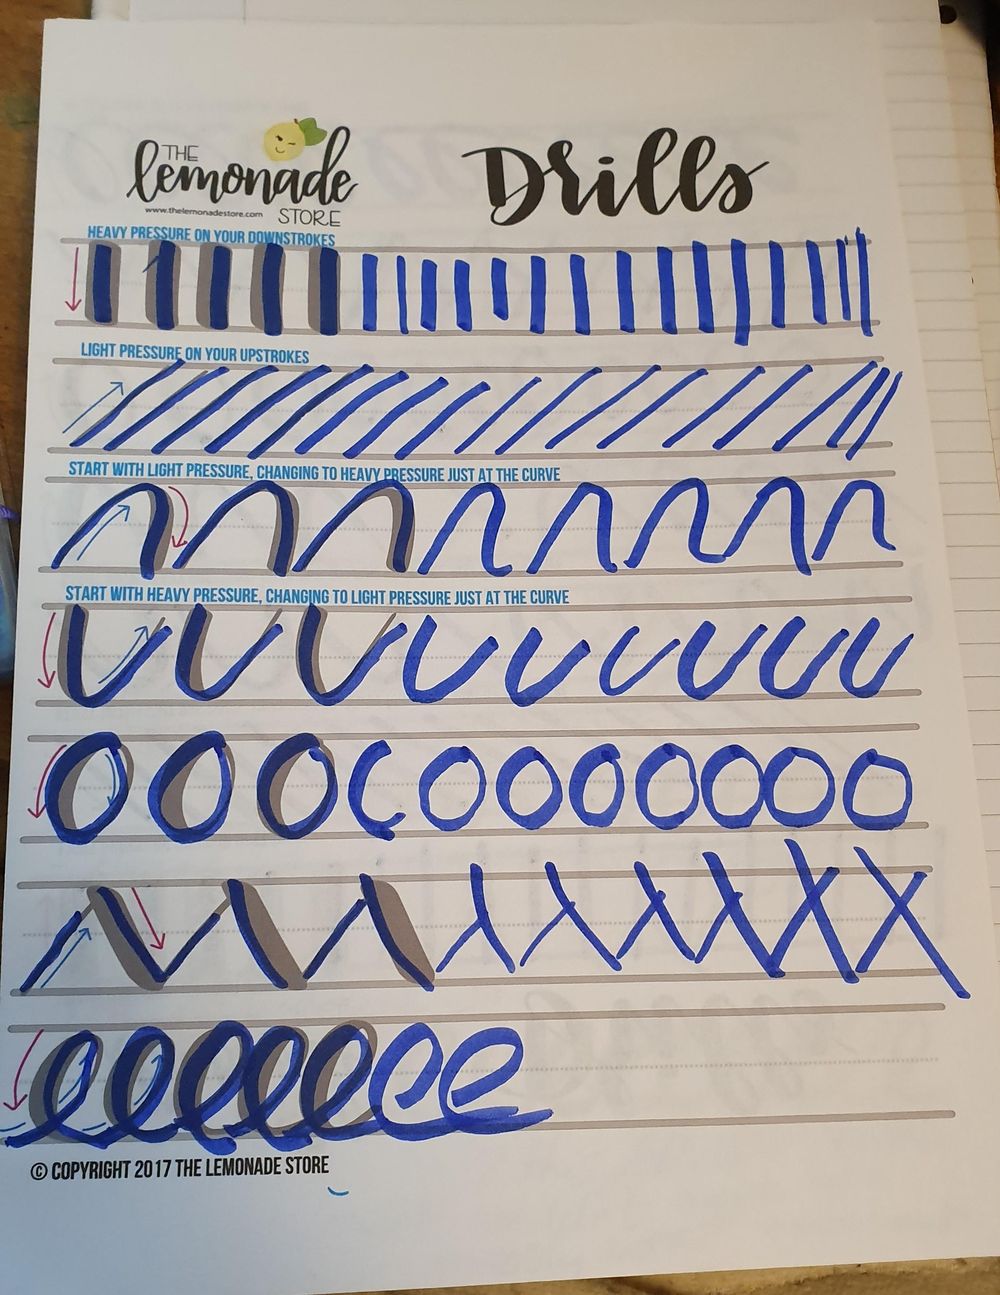 THE
lemonade
STORE
www.thelemonadestore.com
Drills
HEAVY PRESSURE ON YOUR DOWNSTROKES
LIGHT PRESSURE ON YOUR UPSTROKES
START WITH LIGHT PRESSURE, CHANGING TO HEAVY PRESSURE JUST AT THE CURVE
START WITH HEAVY PRESSURE, CHANGING TO LIGHT PRESSURE JUST AT THE CURVE
© COPYRIGHT 2017 THE LEMONADE STORE